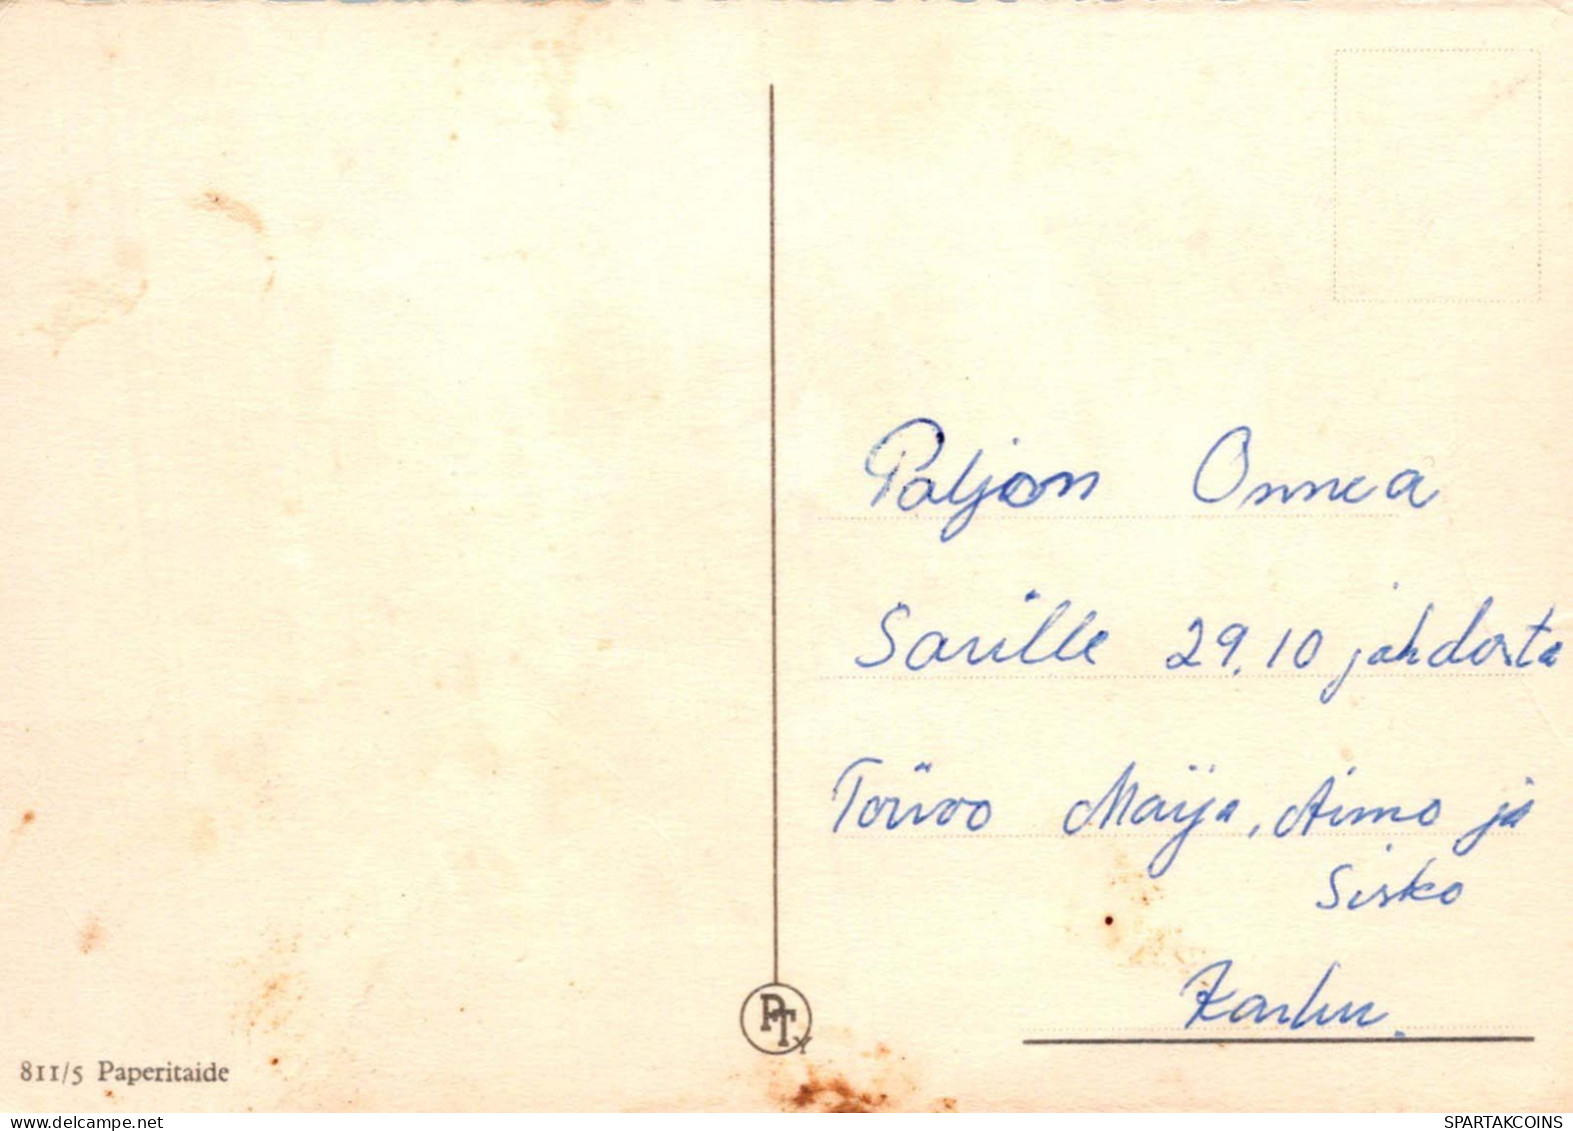 Paljon Onnea
Sarille 29.10 johdosta
Toivo Maija, Aimo ja
Sisko
Karhu.
PTY
811/5 Paperitaide
www.delcampe.net
SPARTAKCOINS